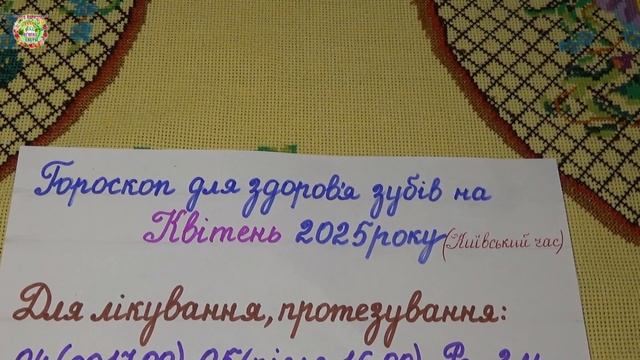 Гороскоп для здоров'я зубів на
Квітень 2025року (Київський час)
Для лікування, протезування: